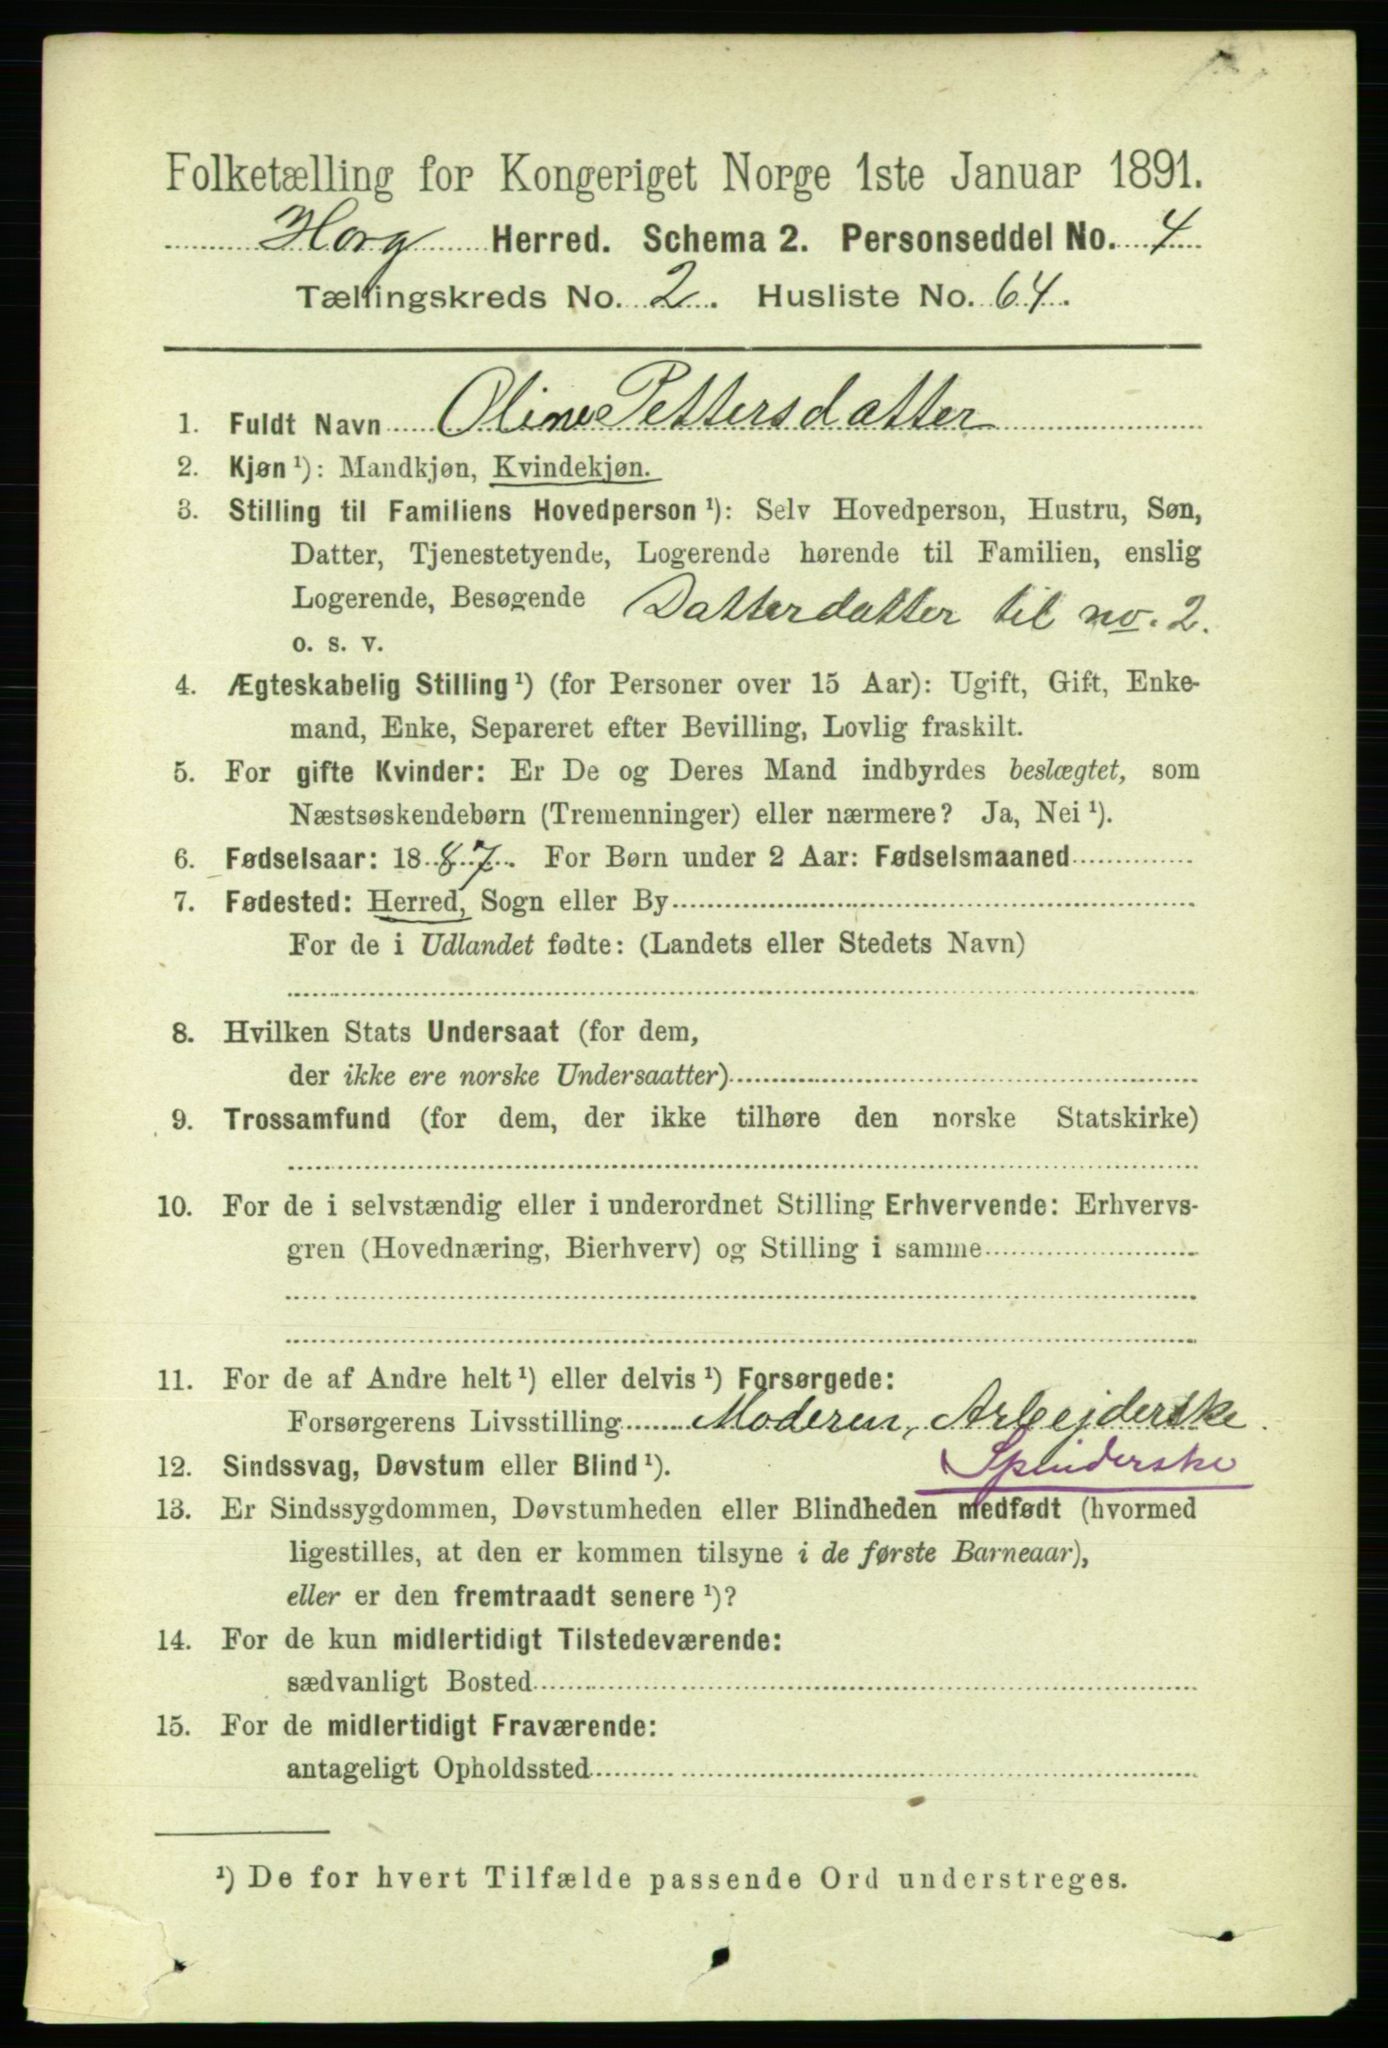 Folketælling for Kongeriget Norge 1ste Januar 1891.
Horg Herred. Schema 2. Personseddel No. 4
Tællingskreds No. 2. Husliste No. 64.
1. Fuldt Navn Oline Pettersdatter
2. Kjøn ¹): Mandkjøn, Kvindekjøn.
3. Stilling til Familiens Hovedperson ¹): Selv Hovedperson, Hustru, Søn,
Datter, Tjenestetyende, Logerende hørende til Familien, enslig
Logerende, Besøgende Datterdatter til no. 2.
o. s. v.
4. Ægteskabelig Stilling ¹) (for Personer over 15 Aar): Ugift, Gift, Enke-
mand, Enke, Separeret efter Bevilling, Lovlig fraskilt.
5. For gifte Kvinder: Er De og Deres Mand indbyrdes beslægtet, som
Næstsøskendebørn (Tremenninger) eller nærmere? Ja, Nei ¹).
6. Fødselsaar: 1887. For Børn under 2 Aar: Fødselsmaaned
7. Fødested: Herred, Sogn eller By
For de i Udlandet fødte: (Landets eller Stedets Navn)
8. Hvilken Stats Undersaat (for dem,
der ikke ere norske Undersaatter)
9. Trossamfund (for dem, der ikke tilhøre den norske Statskirke)
10. For de i selvstændig eller i underordnet Stilling Erhvervende: Erhvervs-
gren (Hovednæring, Bierhverv) og Stilling i samme
11. For de af Andre helt ¹) eller delvis ¹) Forsørgede:
Forsørgerens Livsstilling Moderen, Arbejderske.
12. Sindssvag, Døvstum eller Blind ¹). Spinderske
13. Er Sindssygdommen, Døvstumheden eller Blindheden medfødt (hvormed
ligestilles, at den er kommen tilsyne i de første Barneaar),
eller er den fremtraadt senere ¹)?
14. For de kun midlertidigt Tilstedeværende:
sædvanligt Bosted
15. For de midlertidigt Fraværende:
antageligt Opholdssted
¹) De for hvert Tilfælde passende Ord understreges.